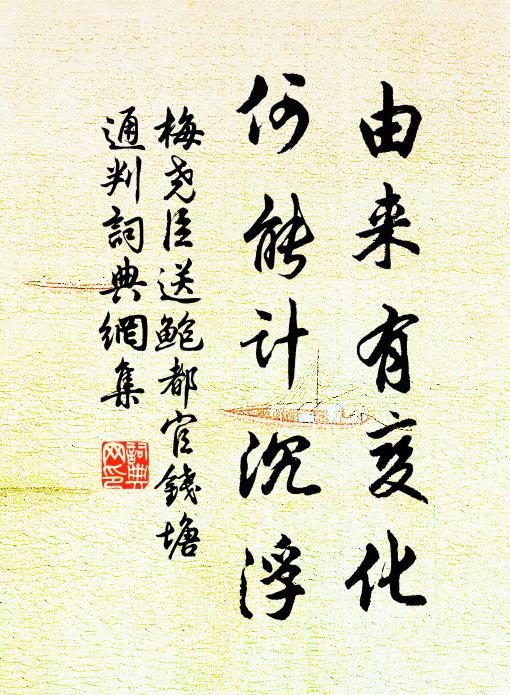 由来有变化
何能计沉浮
梅尧臣送鲍都官钱塘
通判词典网集
詞典
网印